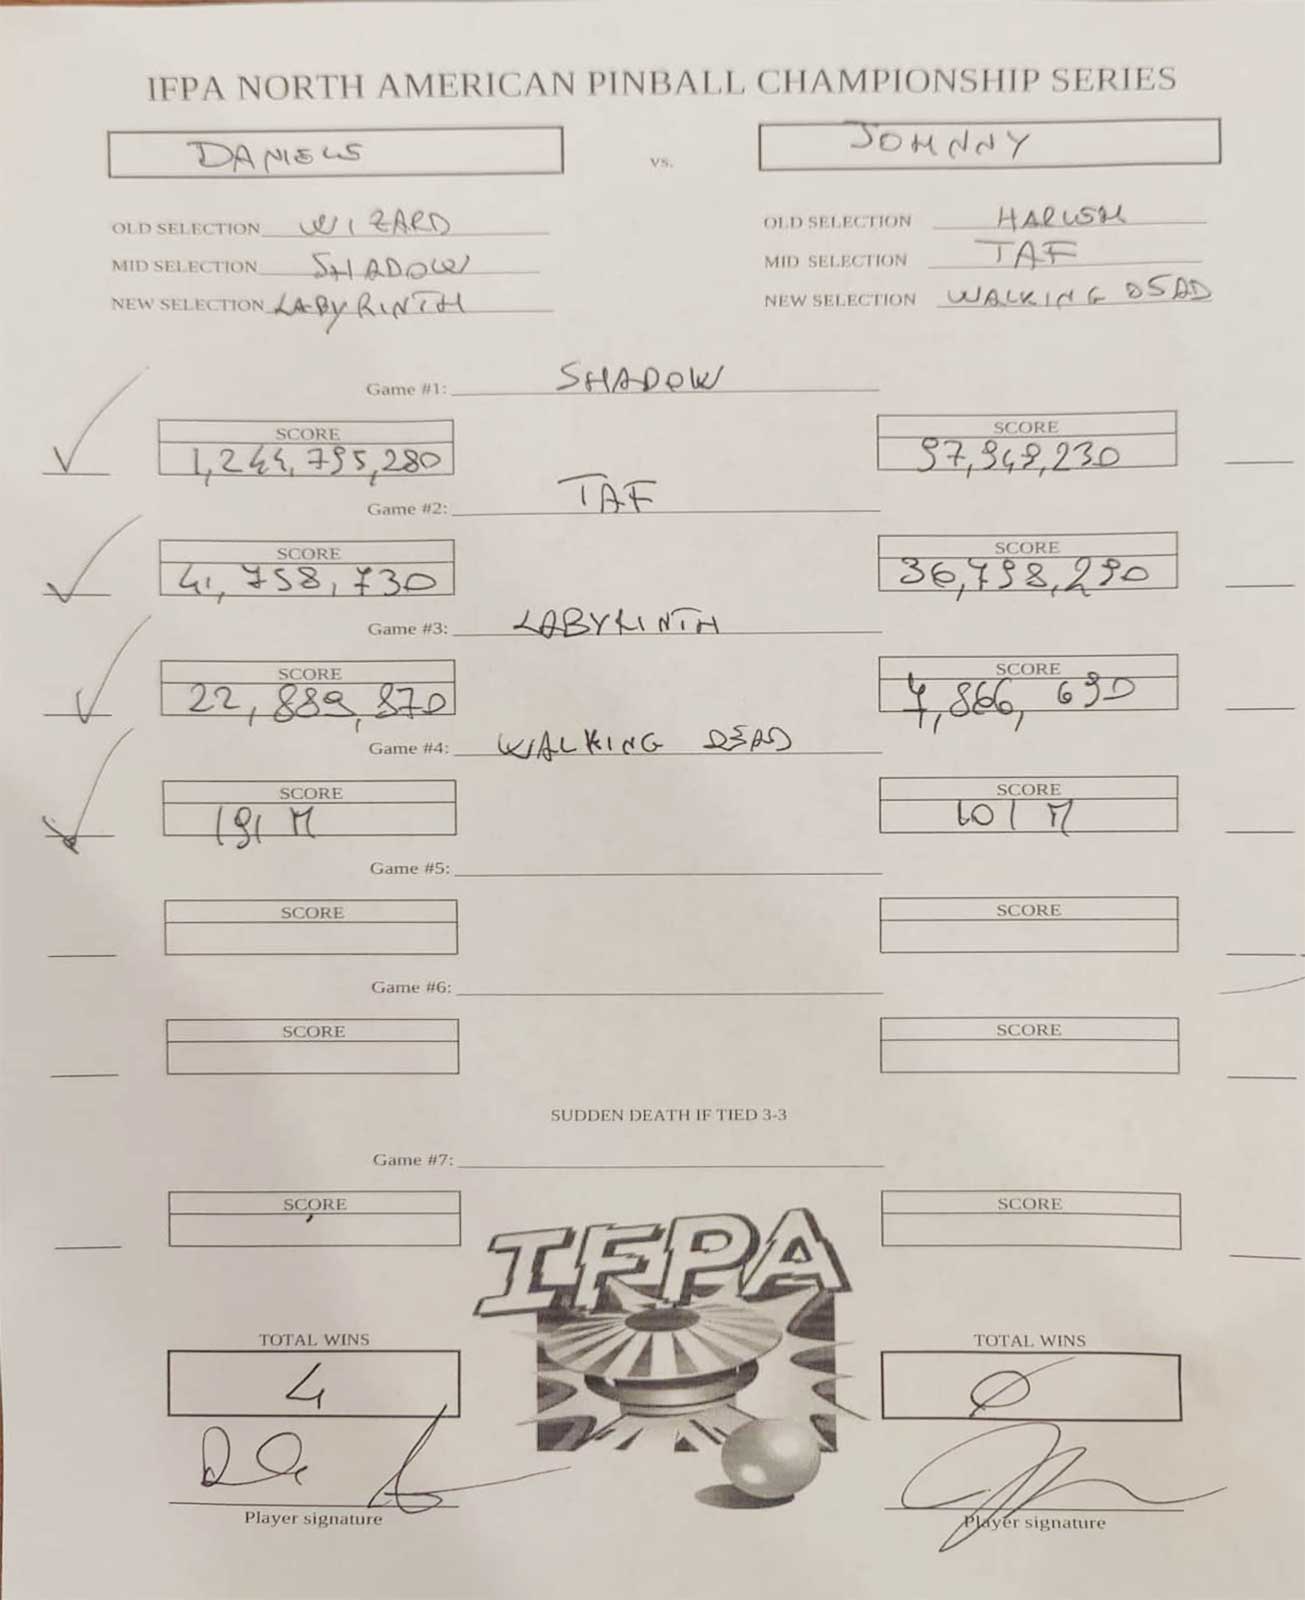 IFPA NORTH AMERICAN PINBALL CHAMPIONSHIP SERIES
DANIELS vs. JOHNNY
OLD SELECTION WIZARD OLD SELECTION
MID SELECTION SHADOW MID SELECTION TAF
NEW SELECTION LABYRINTH NEW SELECTION WALKING DEAD
Game #1: SHADOW
SCORE SCORE
1,244,795,280 97,949,230
Game #2: TAF
SCORE SCORE
41,758,730 36,798,290
Game #3: LABYRINTH
SCORE SCORE
22,889,870 4,866,690
Game #4: WALKING DEAD
SCORE SCORE
191 M 101 M
Game #5:
SCORE SCORE
Game #6:
SCORE SCORE
SUDDEN DEATH IF TIED 3-3
Game #7:
SCORE SCORE
IFPA
TOTAL WINS TOTAL WINS
4 0
Player signature Player signature